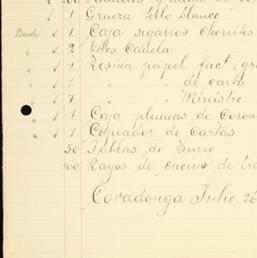 1 Grueza hilo blanco
Buds ✓ 1 Caja sigarros Chorritos
✓ 2 Kilos Canela
✓ 1 Resma papel fact. gr
✓ 1 " " de carta
✓ 7 " " Ministro
✓ 1 Caja plumas de Coron
✓ 1 Copiador de Cartas
50 Tablas de
100 Rayos de encino de
Coradonga Julio 26